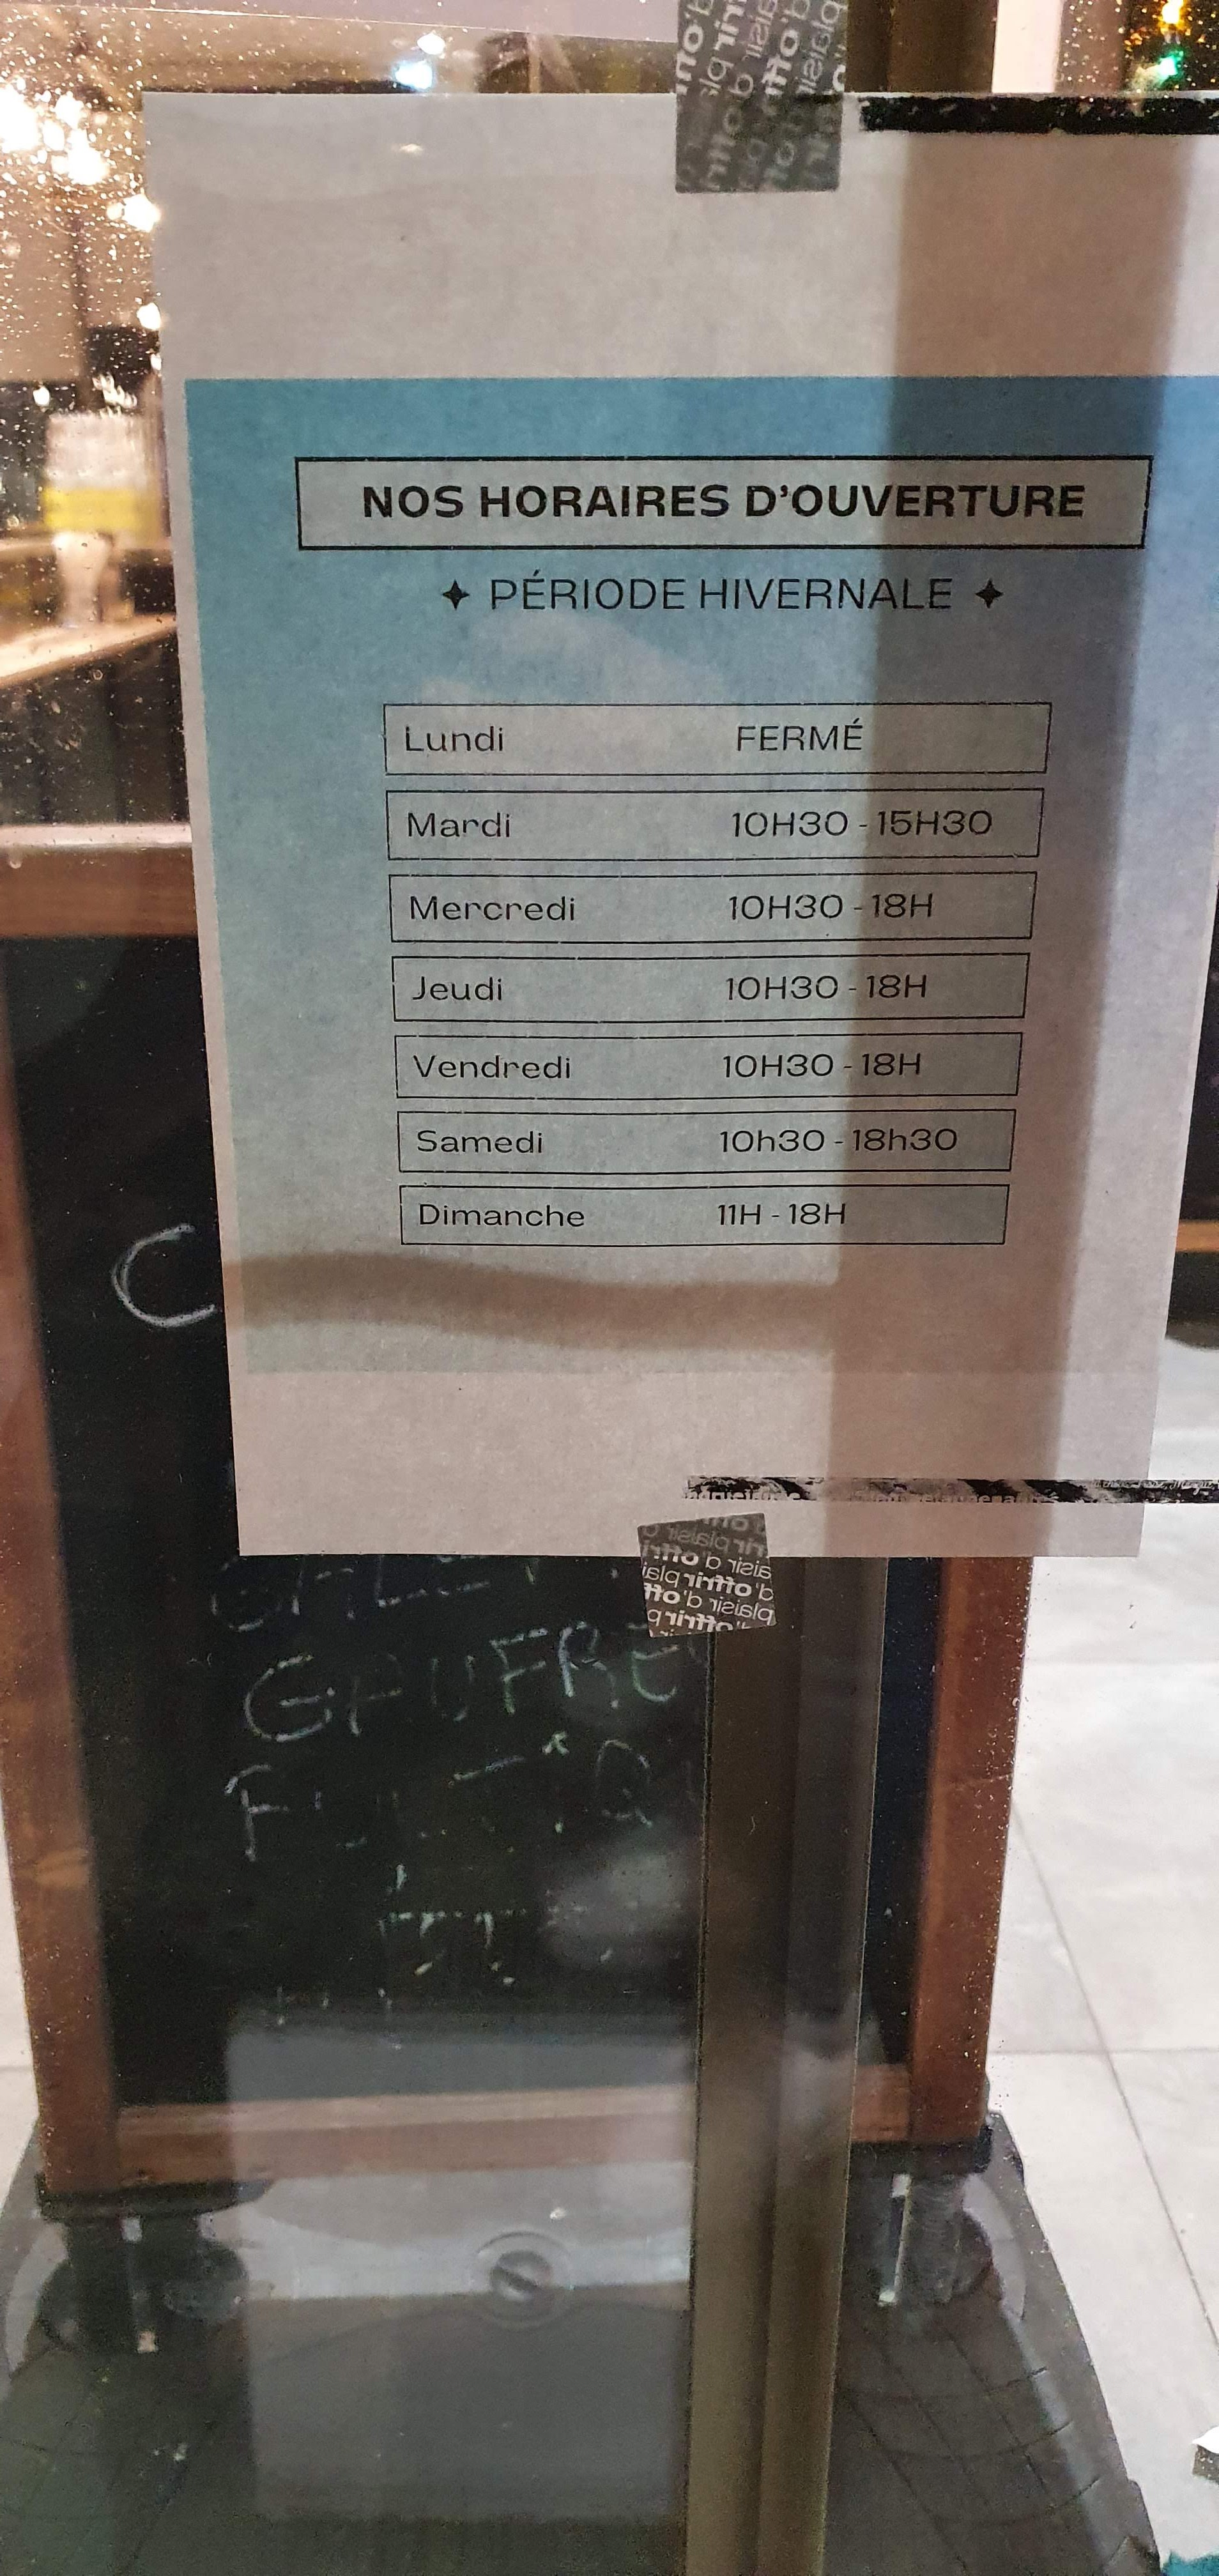 NOS HORAIRES D'OUVERTURE
✦ PÉRIODE HIVERNALE ✦
Lundi FERMÉ
Mardi 10H30 - 15H30
Mercredi 10H30 - 18H
Jeudi 10H30 - 18H
Vendredi 10H30 - 18H
Samedi 10h30 - 18h30
Dimanche 11H - 18H
plaisir d'offrir
GAUFRE